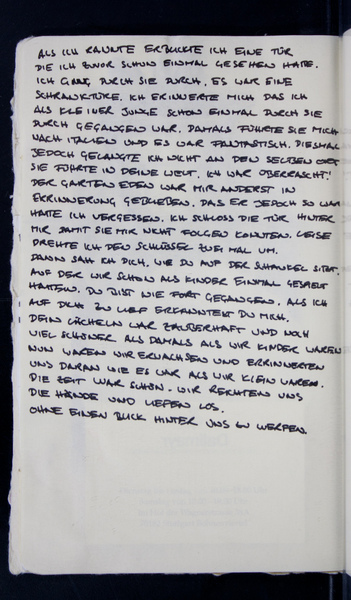 ALS ICH RANNTE ERBLICKTE ICH EINE TÜR
DIE ICH ZUVOR SCHON EINMAL GESEHEN HATTE.
ICH GING DURCH SIE DURCH. ES WAR EINE
SCHRANKTÜRE. ICH ERINNERTE MICH DAS ICH
ALS KLEINER JUNGE SCHON EINMAL DURCH SIE
DURCH GEGANGEN WAR. DAMALS FÜHRTE SIE MICH
NACH ITALIEN UND ES WAR FANTASTISCH. DIESMAL
JEDOCH GELANGTE ICH NICHT AN DEN SELBEN ORT
SIE FÜHRTE IN DEINE WELT. ICH WAR ÜBERRASCHT!
DER GARTEN EDEN WAR MIR ANDERST IN
ERRINNERUNG GEBLIEBEN. DAS ER JEDOCH SO WAR
HATTE ICH VERGESSEN. ICH SCHLOSS DIE TÜR HINTER
MIR DAMIT SIE MIR NICHT FOLGEN KONNTEN. LEISE
DREHTE ICH DEN SCHLÜSSEL ZWEI MAL UM.
DANN SAH ICH DICH, WIE DU AUF DER SCHAUKEL SITZT.
AUF DER WIR SCHON ALS KINDER EINMAL GESPIELT
HATTEN. DU BIST NIE FORT GEGANGEN. ALS ICH
AUF DICH ZU LIEF ERKANNTEST DU MICH.
DEIN LÄCHELN WAR ZAUBERHAFT UND NOCH
VIEL SCHÖNER ALS DAMALS ALS WIR KINDER WAREN
NUN WAREN WIR ERWACHSEN UND ERRINNERTEN
UNS DARAN WIE ES WAR ALS WIR KLEIN WAREN.
DIE ZEIT WAR SCHÖN. WIR REICHTEN UNS
DIE HÄNDE UND LIEFEN LOS.
OHNE EINEN BLICK HINTER UNS ZU WERFEN.